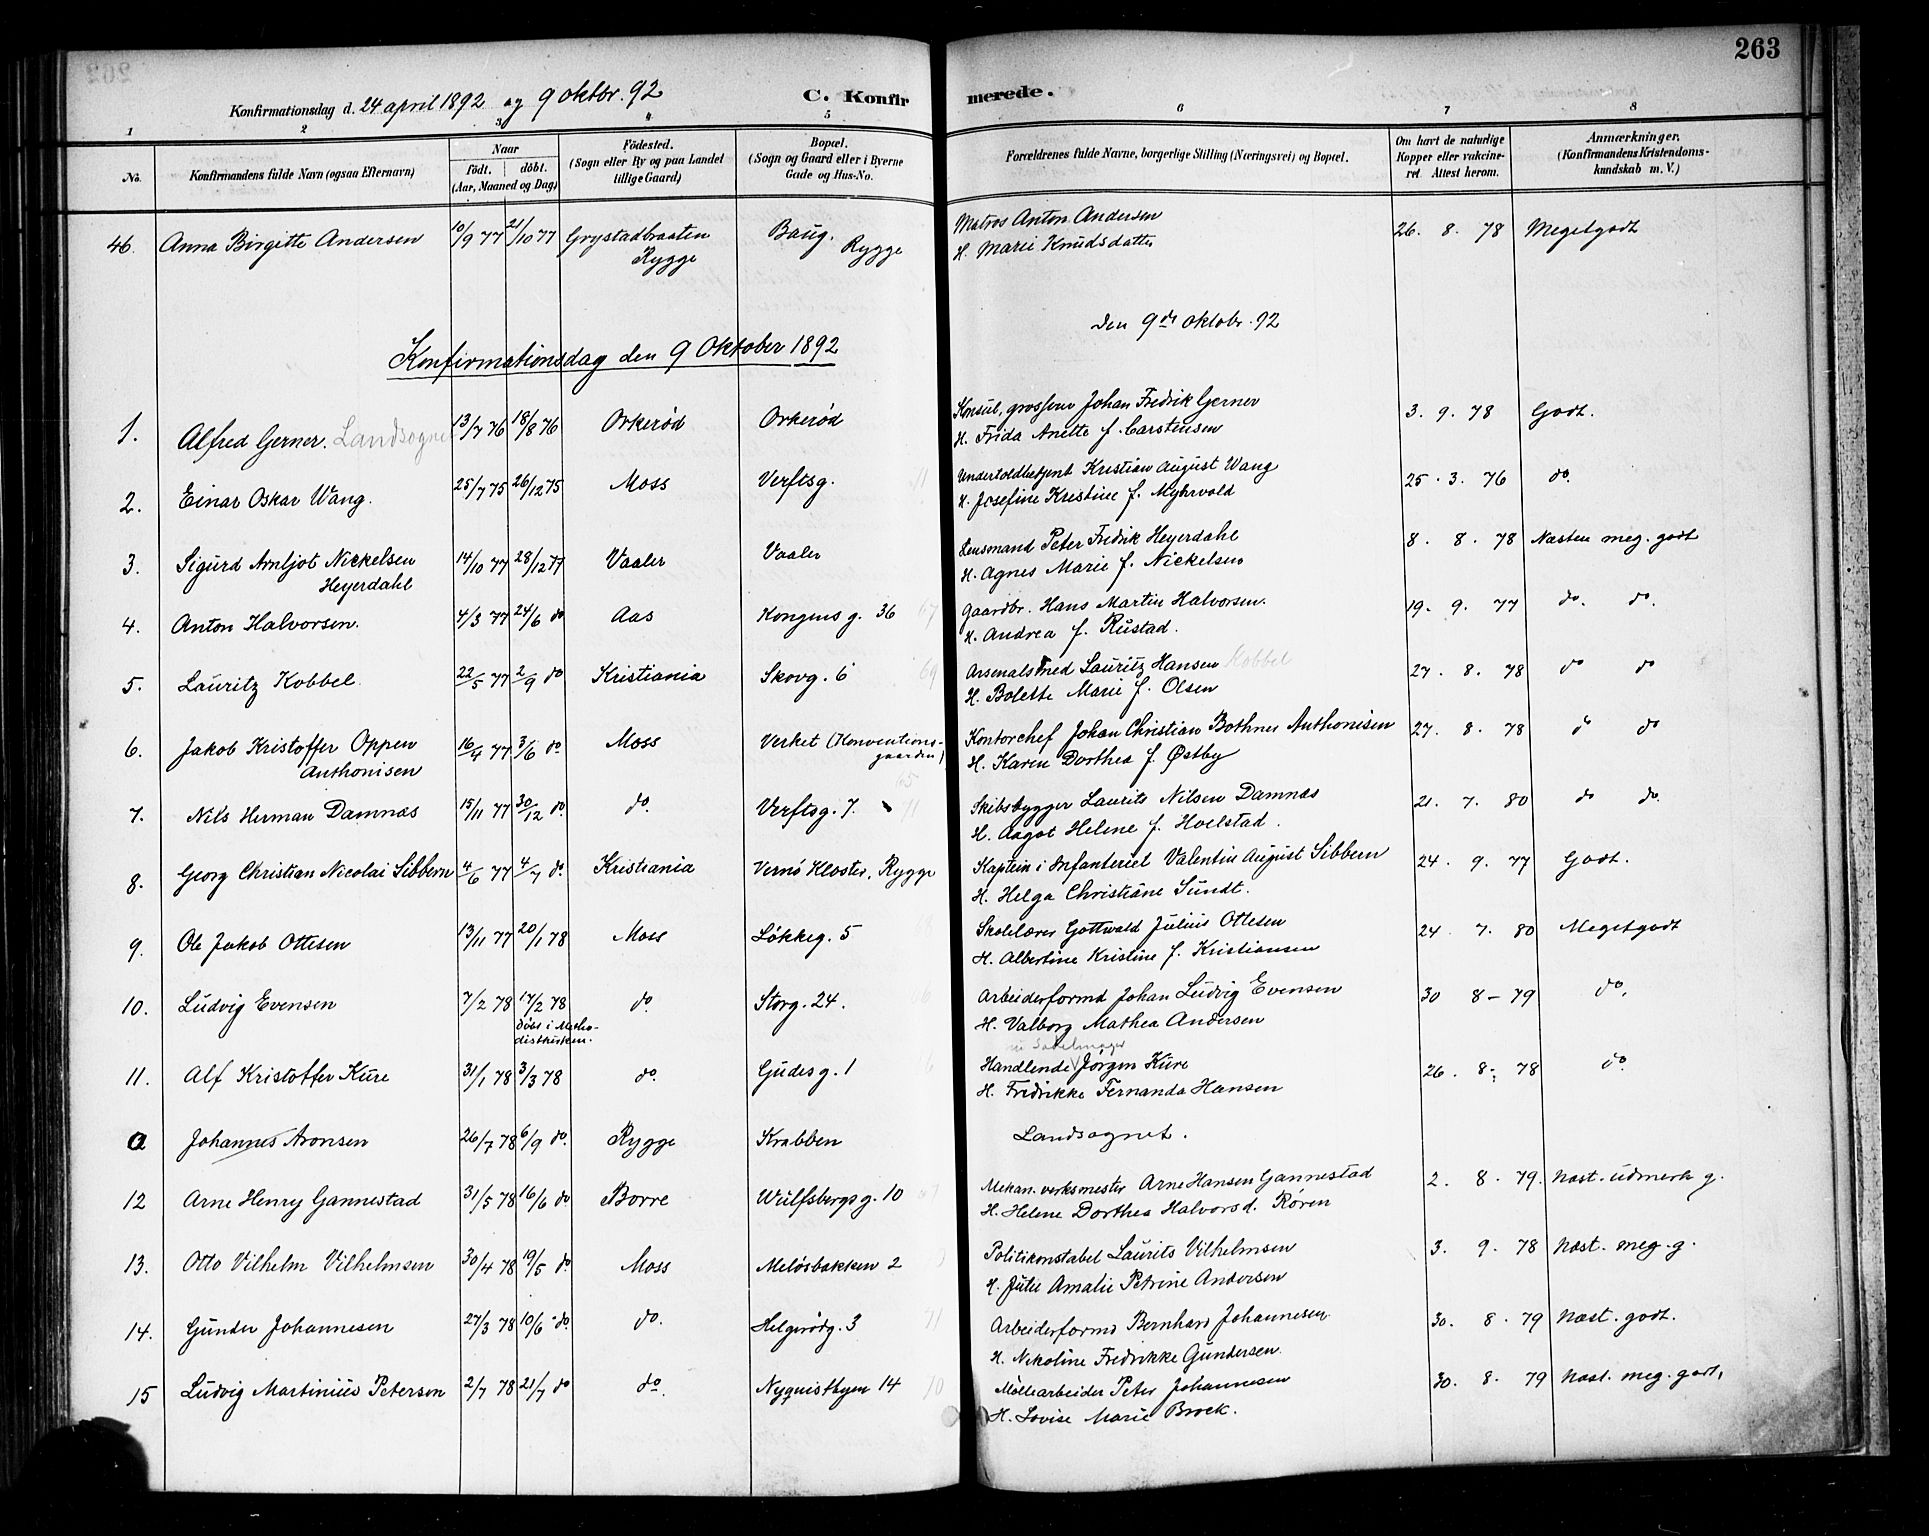 263
Konfirmationsdag d. 24 april 1892 og 9 oktbr. 92
C. Konfirmerede.
1 2 3 4 5 6 7 8
No. Konfirmandens fulde Navn (ogsaa Efternavn) Naar født. døbt. (Aar, Maaned og Dag) Fødested. (Sogn eller By og paa Landet tillige Gaard) Bopæl. (Sogn og Gaard eller i Byerne Gade og Hus-No. Forældrenes fulde Navne, borgerlige Stilling (Næringsvei) og Bopæl. Om havt de naturlige Kopper eller vakcineret. Attest herom. Anmærkninger. (Konfirmandens Kristendomskundskab m. V.)
46. Anna Birgitte Andersen 10/9 77 21/10 77 Grystadbraaten Rygge Baug. Rygge Matros Anton Andersen
H. Marie Knudsdatter 26. 8. 78 Megetgodt
Konfirmationsdag den 9 Oktober 1892
den 9de oktobr. 92
1. Alfred Gerner. Landsognet 13/7 76 18/8 76 Orkerød Orkerød Konsul, grosserer Johan Fredrik Gerner
H. Frida Anette f. Carstensen 3. 9. 78 Godt.
2. Einar Oskar Wang. 25/7 75 26/12 75 Moss Verftsg. 11 Undertoldbetjent Kristian August Wang
H. Josefine Kristine f. Myhrvold 25. 3. 76 do.
3. Sigurd Arnljot Nickelsen Heyerdahl 14/10 77 28/12 77 Vaaler Vaaler Lensmand Peter Fredrik Heyerdahl
H. Agnes Marie f. Nickelsen 8. 8. 78 Næsten meg. godt
4. Anton Halvorsen. 4/3 77 24/6 do Aas Kongens g. 36 67 Gaardbr. Hans Martin Halvorsen.
H. Andrea f. Rustad. 19. 9. 77 do. do.
5. Lauritz Kobbel 22/5 77 2/9 do Kristiania Skovg. 6 69 Arsenalsmed Lauritz Hansen Kobbel
H. Bolette Marie f. Olsen 27. 8. 78 do do
6. Jakob Kristoffer Oppen Anthonisen 16/4 77 3/6 do Moss Verket (Konventionsgaarden) 65 Kontorchef Johan Christian Bothner Anthonisen
H. Karen Dorthea f. Østby 27. 8. 78 do do
7. Nils Herman Damnæs 15/11 77 30/12 do. do. Verftsg. 7. 11 Skibsbygger Laurits Nilsen Damnæs
H. Aagot Helene f. Hoelstad. 21. 7. 80 do do.
8. Georg Christian Nicolai Sibbern 4/6 77 4/7 do. Kristiania Vernö Kloster, Rygge Kaptein i Infanteriet Valentin August Sibbern
H. Helga Christiane Sundt. 24. 9. 77 Godt.
9. Ole Jakob Ottesen 13/11 77 20/1 78 Moss Løkkeg. 5 Skolelærer Gottwald Julius Ottesen
H. Albertine Kristine f. Kristiansen 24. 7. 80 Megetgodt
10. Ludvig Evensen 7/2 78 17/2 78 døbt i Methodistkirken. do. Storg. 24. Arbeiderformd Johan Ludvig Evensen
H. Valborg Mathea Andersen 30 8 - 79 do.
11. Alf Kristoffer Kure 31/1 78 3/3 78 do. Gudesg. 1 Handlende Jørgen Kure
H. Fredrikke Fernanda Hansen 26. 8. 78 do.
a Johannes Aronsen 26/7 78 6/9 do. Rygge Krabben Landsognet.
12 Arne Henry Gannestad 31/5 78 16/6 do Borre Wulfsbergs g. 10 67 Mekan. verksmester Arne Hansen Gannestad
H. Helene Dorthea Halvorsd. Røren 2. 8. 79. Næst. udmerk g.
13. Otto Vilhelm Vilhelmsen 30/4 78 19/5 do Moss Meløsbakken 2 Politikonstabel Laurits Vilhelmsen
H. Julie Amalie Petrine Andersen 3. 9. 78 Næst. meg. g.
14. Gunder Johannesen 27/3 78 10/6 do. do. Helgerødg. 3 71 Arbeiderformd Bernhard Johannesen
H. Nikoline Fredrikke Gundersen. 30. 8. 79 Næst. godt.
15 Ludvig Martinius Petersen 2/7 78 21/7 do do. Nyquistbyen 14 70 Møllearbeider Peter Johannesen
H. Lovise Marie Brock. 30. 8. 79 Næst. meg. godt.